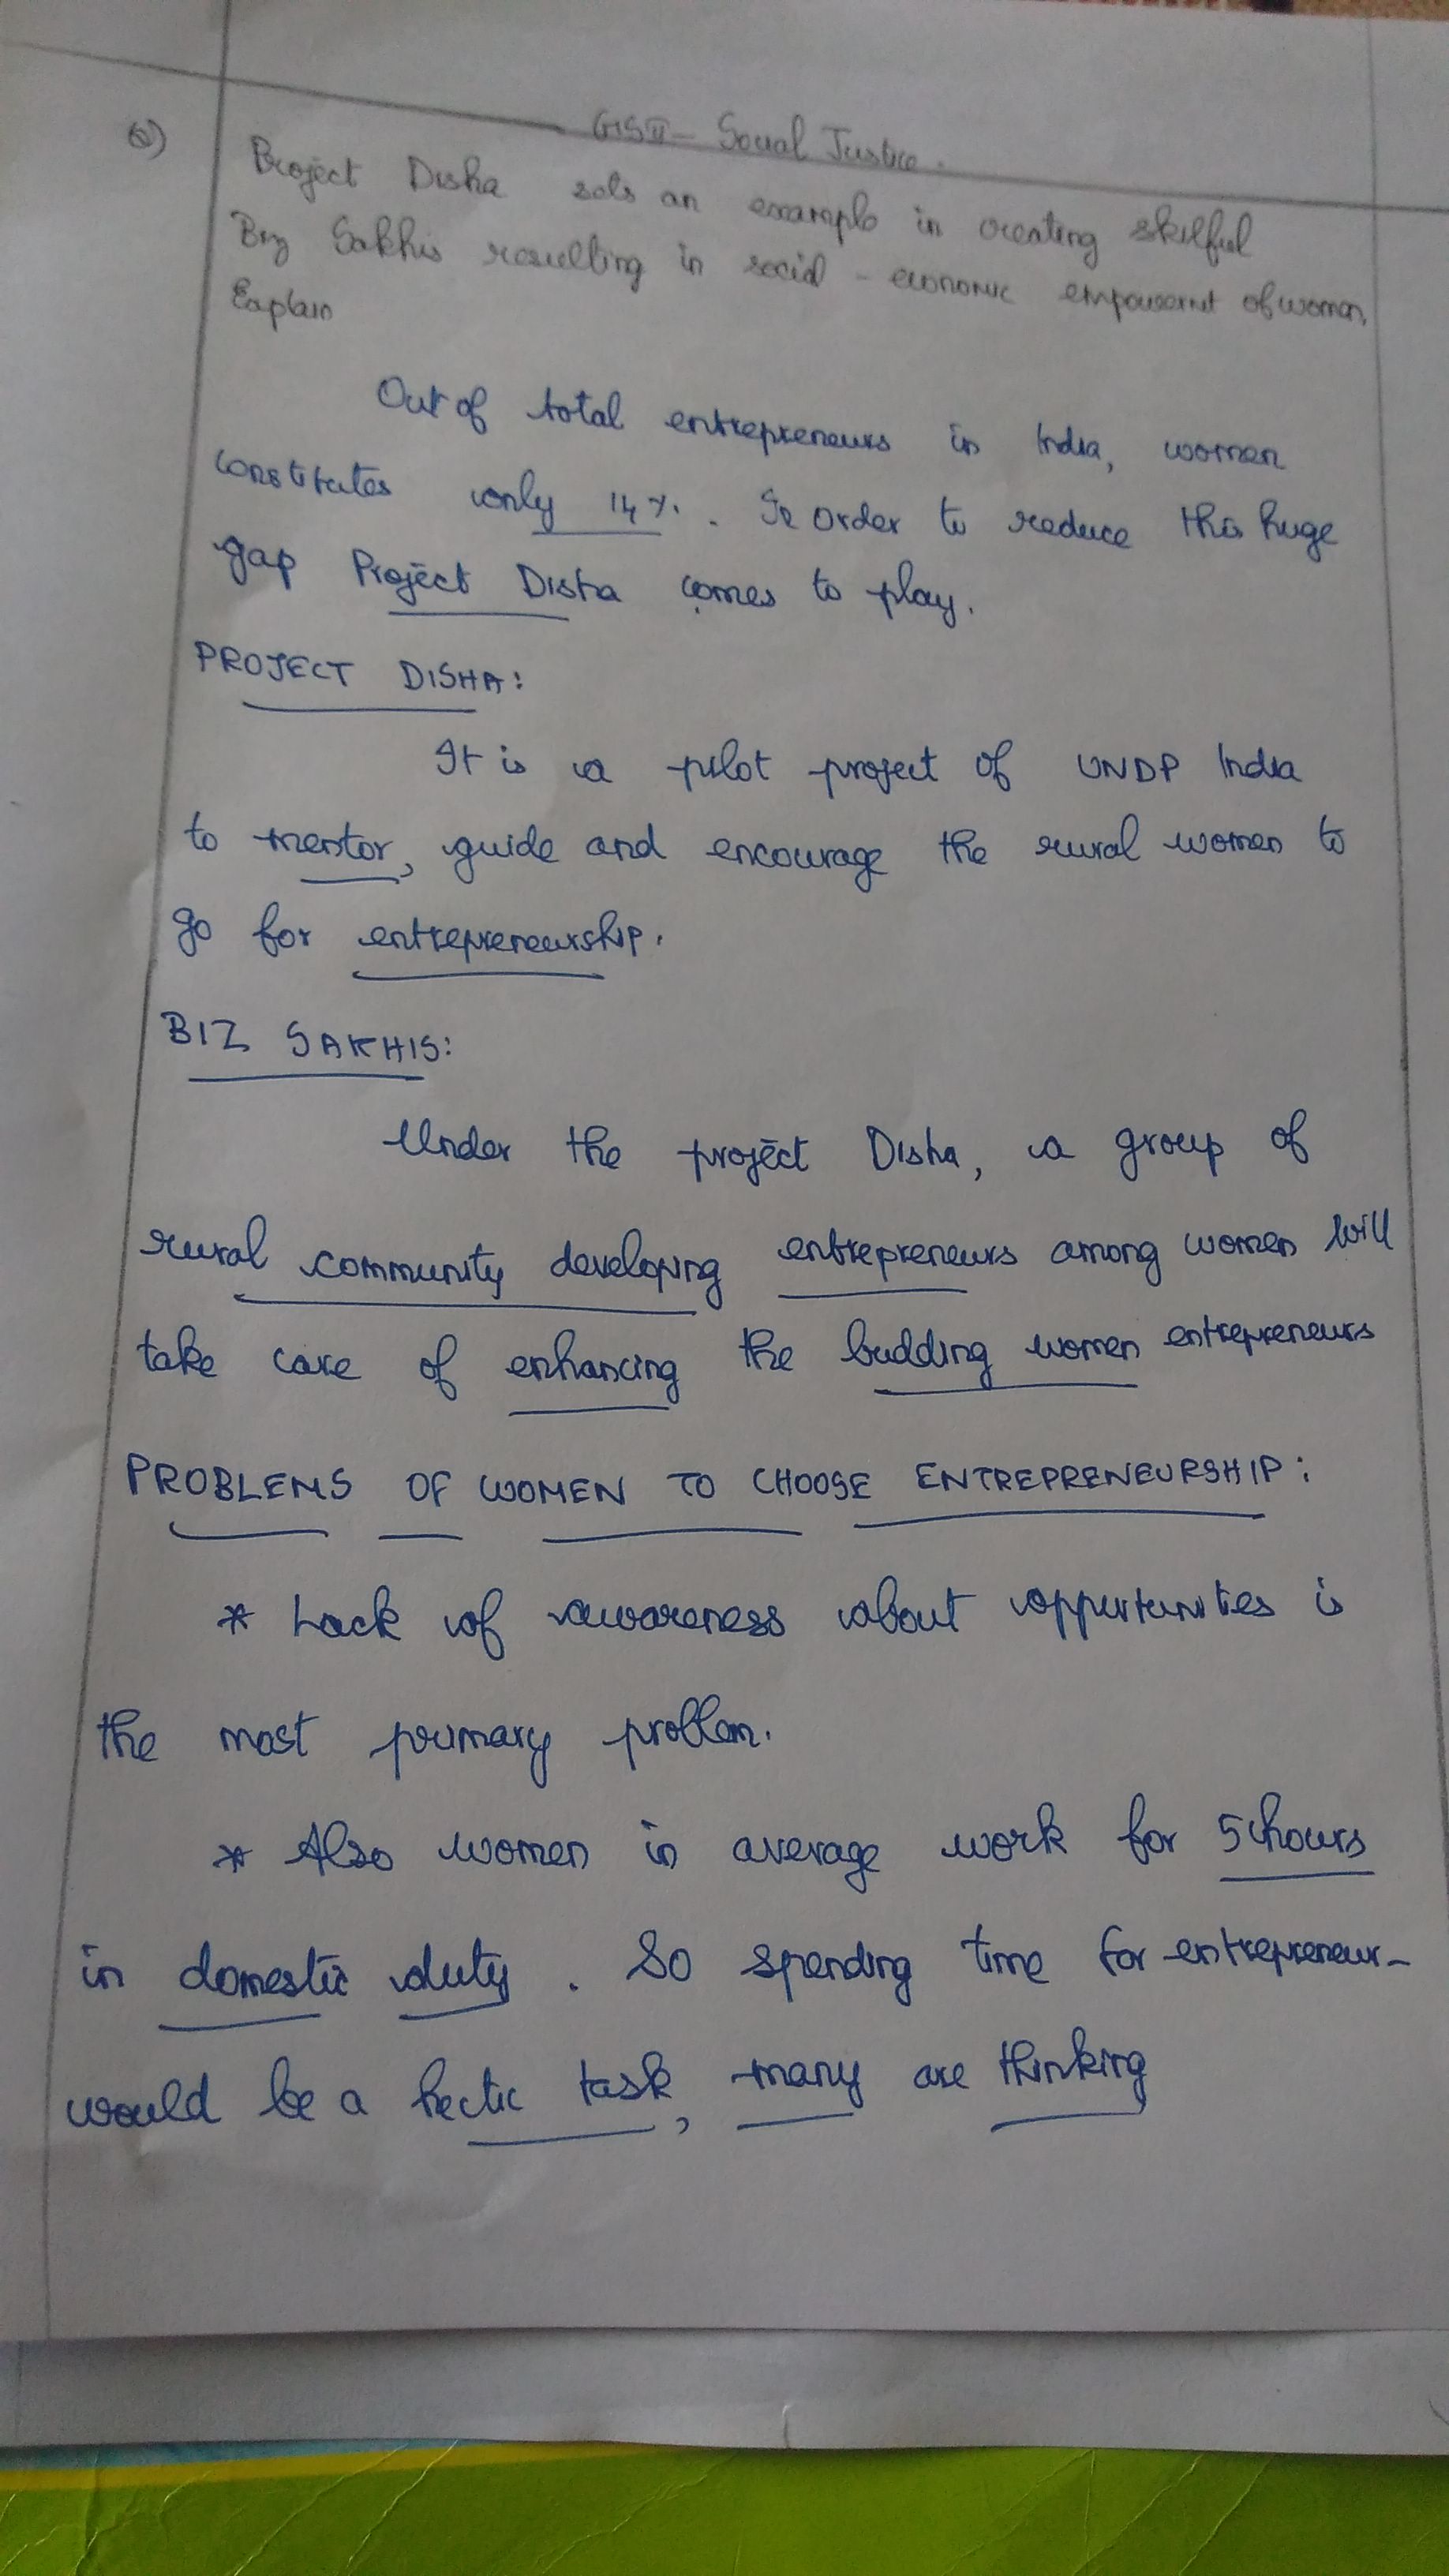 GS II - Social Justice.
Q) Project Disha sets an example in creating skilful
Biz Sakhis resulting in social - economic empowerment of women.
Explain
Out of total entrepreneurs in India, women
constitutes only 14%. In order to reduce this huge
gap Project Disha comes to play.
PROJECT DISHA:
It is a pilot project of UNDP India
to mentor, guide and encourage the rural women to
go for entrepreneurship.
BIZ SAKHIS:
Under the project Disha, a group of
rural community developing entrepreneurs among women will
take care of enhancing the budding women entrepreneurs
PROBLEMS OF WOMEN TO CHOOSE ENTREPRENEURSHIP:
* Lack of awareness about oppurtunities is
the most primary problem.
* Also women in average work for 5 hours
in domestic duty. So spending time for entrepreneur-
would be a hectic task, many are thinking